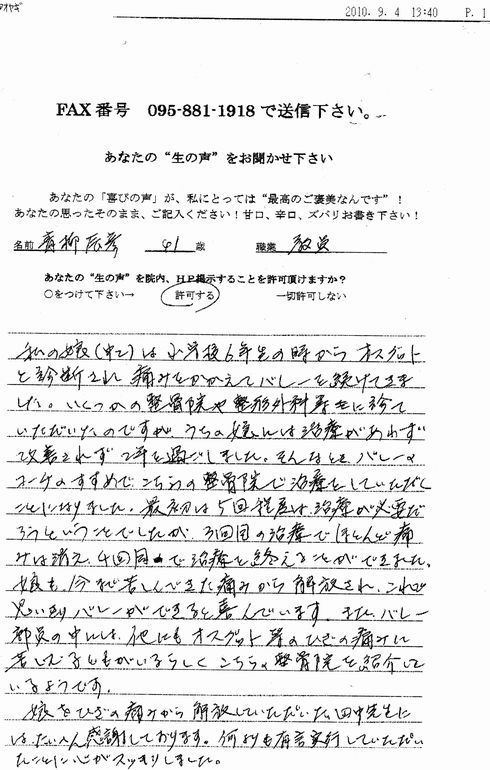 アオヤギ
2010. 9. 4 13:40 P. 1
FAX番号 095-881-1918で送信下さい。
あなたの“生の声”をお聞かせ下さい
あなたの「喜びの声」が、私にとっては“最高のご褒美なんです”！
あなたの思ったそのまま、ご記入ください！甘口、辛口、ズバリお書き下さい！
名前 青柳 辰彦 41 歳 職業 教員
あなたの“生の声”を院内、HP掲示することを許可頂けますか？
○をつけて下さい→ 許可する 一切許可しない
私の娘(中2)は小学校6年生の時からオスグット
と診断され痛みをかかえてバレーを続けてきま
した。いくつかの整骨院や整形外科専生に診て
いただいたのですが、うちの娘には治療があわず
改善されず2年を過ごしました。そんなときバレーの
コーチのすすめでこちらの整骨院で治療をしていただく
ことになりました。最初は5回程度は治療が必要だ
ろうということでしたが、3回目の治療でほとんど痛
みは消え、4回目で治療を終えることができました。
娘も、今まで苦しんできた痛みから解放され、これで
思い切りバレーができると喜んでいます。また、バレー
部員の中には、他にもオスグット等のひざの痛みに
苦しむ子どもがいるらしくこちらの整骨院を紹介して
いるようです。
娘をひざの痛みから解放していただいた田中先生に
は、たいへん感謝しております。何よりも有言実行していただい
たことに心がスッキリしました。